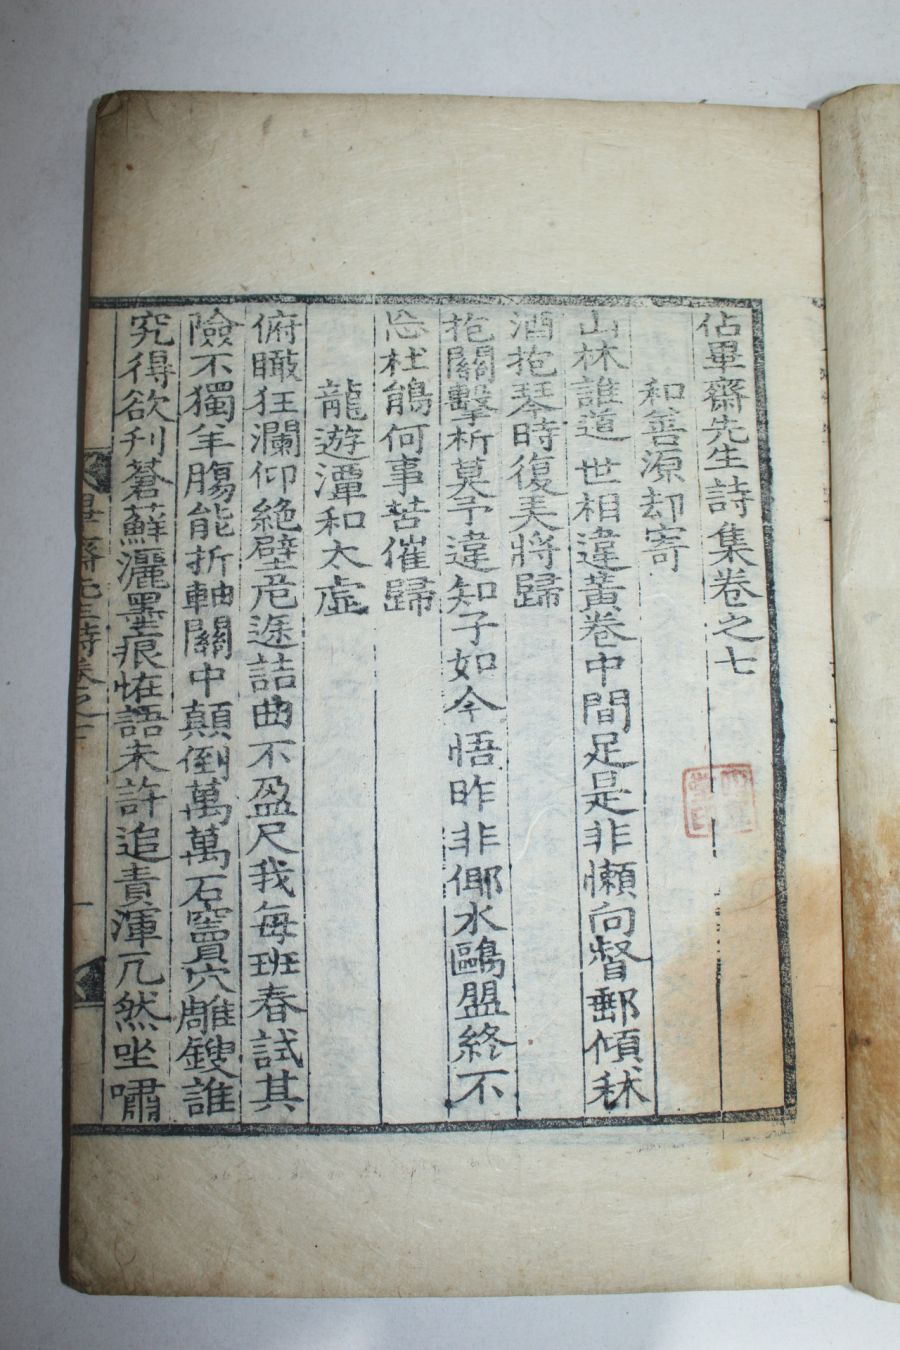 佔畢齋先生詩集卷之七
和善源却寄
山林誰道世相違黃卷中間足是非懶向督郵傾秫
酒抱琴時復美將歸
抱關擊柝莫予違知子如今悟昨非倻水鷗盟終不
忘杜鵑何事苦催歸
龍遊潭和太虛
俯瞰狂瀾仰絶壁危途詰曲不盈尺我每班春試其
險不獨羊膓能折軸關中顛倒萬萬石竇穴雕鎪誰
究得欲刋蒼蘚灑墨痕恠語未許追責渾兀然坐嘯